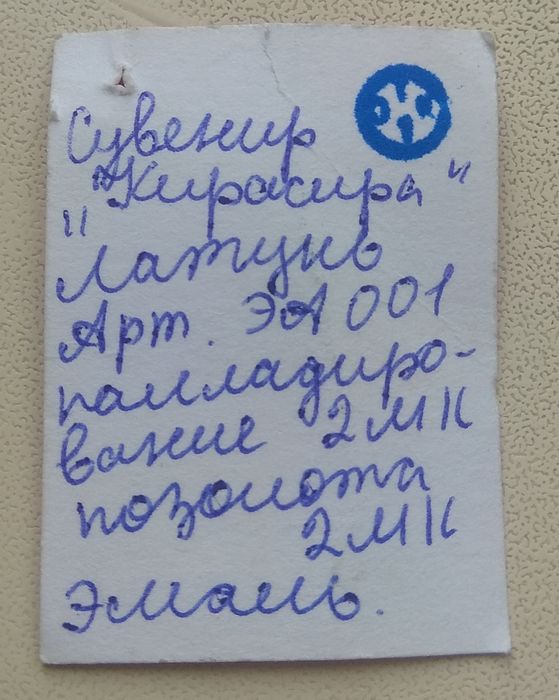 Сувенир
"Кирасира"
Латунь
Арт. ЭА 001
палладиро-
вание 2МК
позолота
2МК
Эмаль.